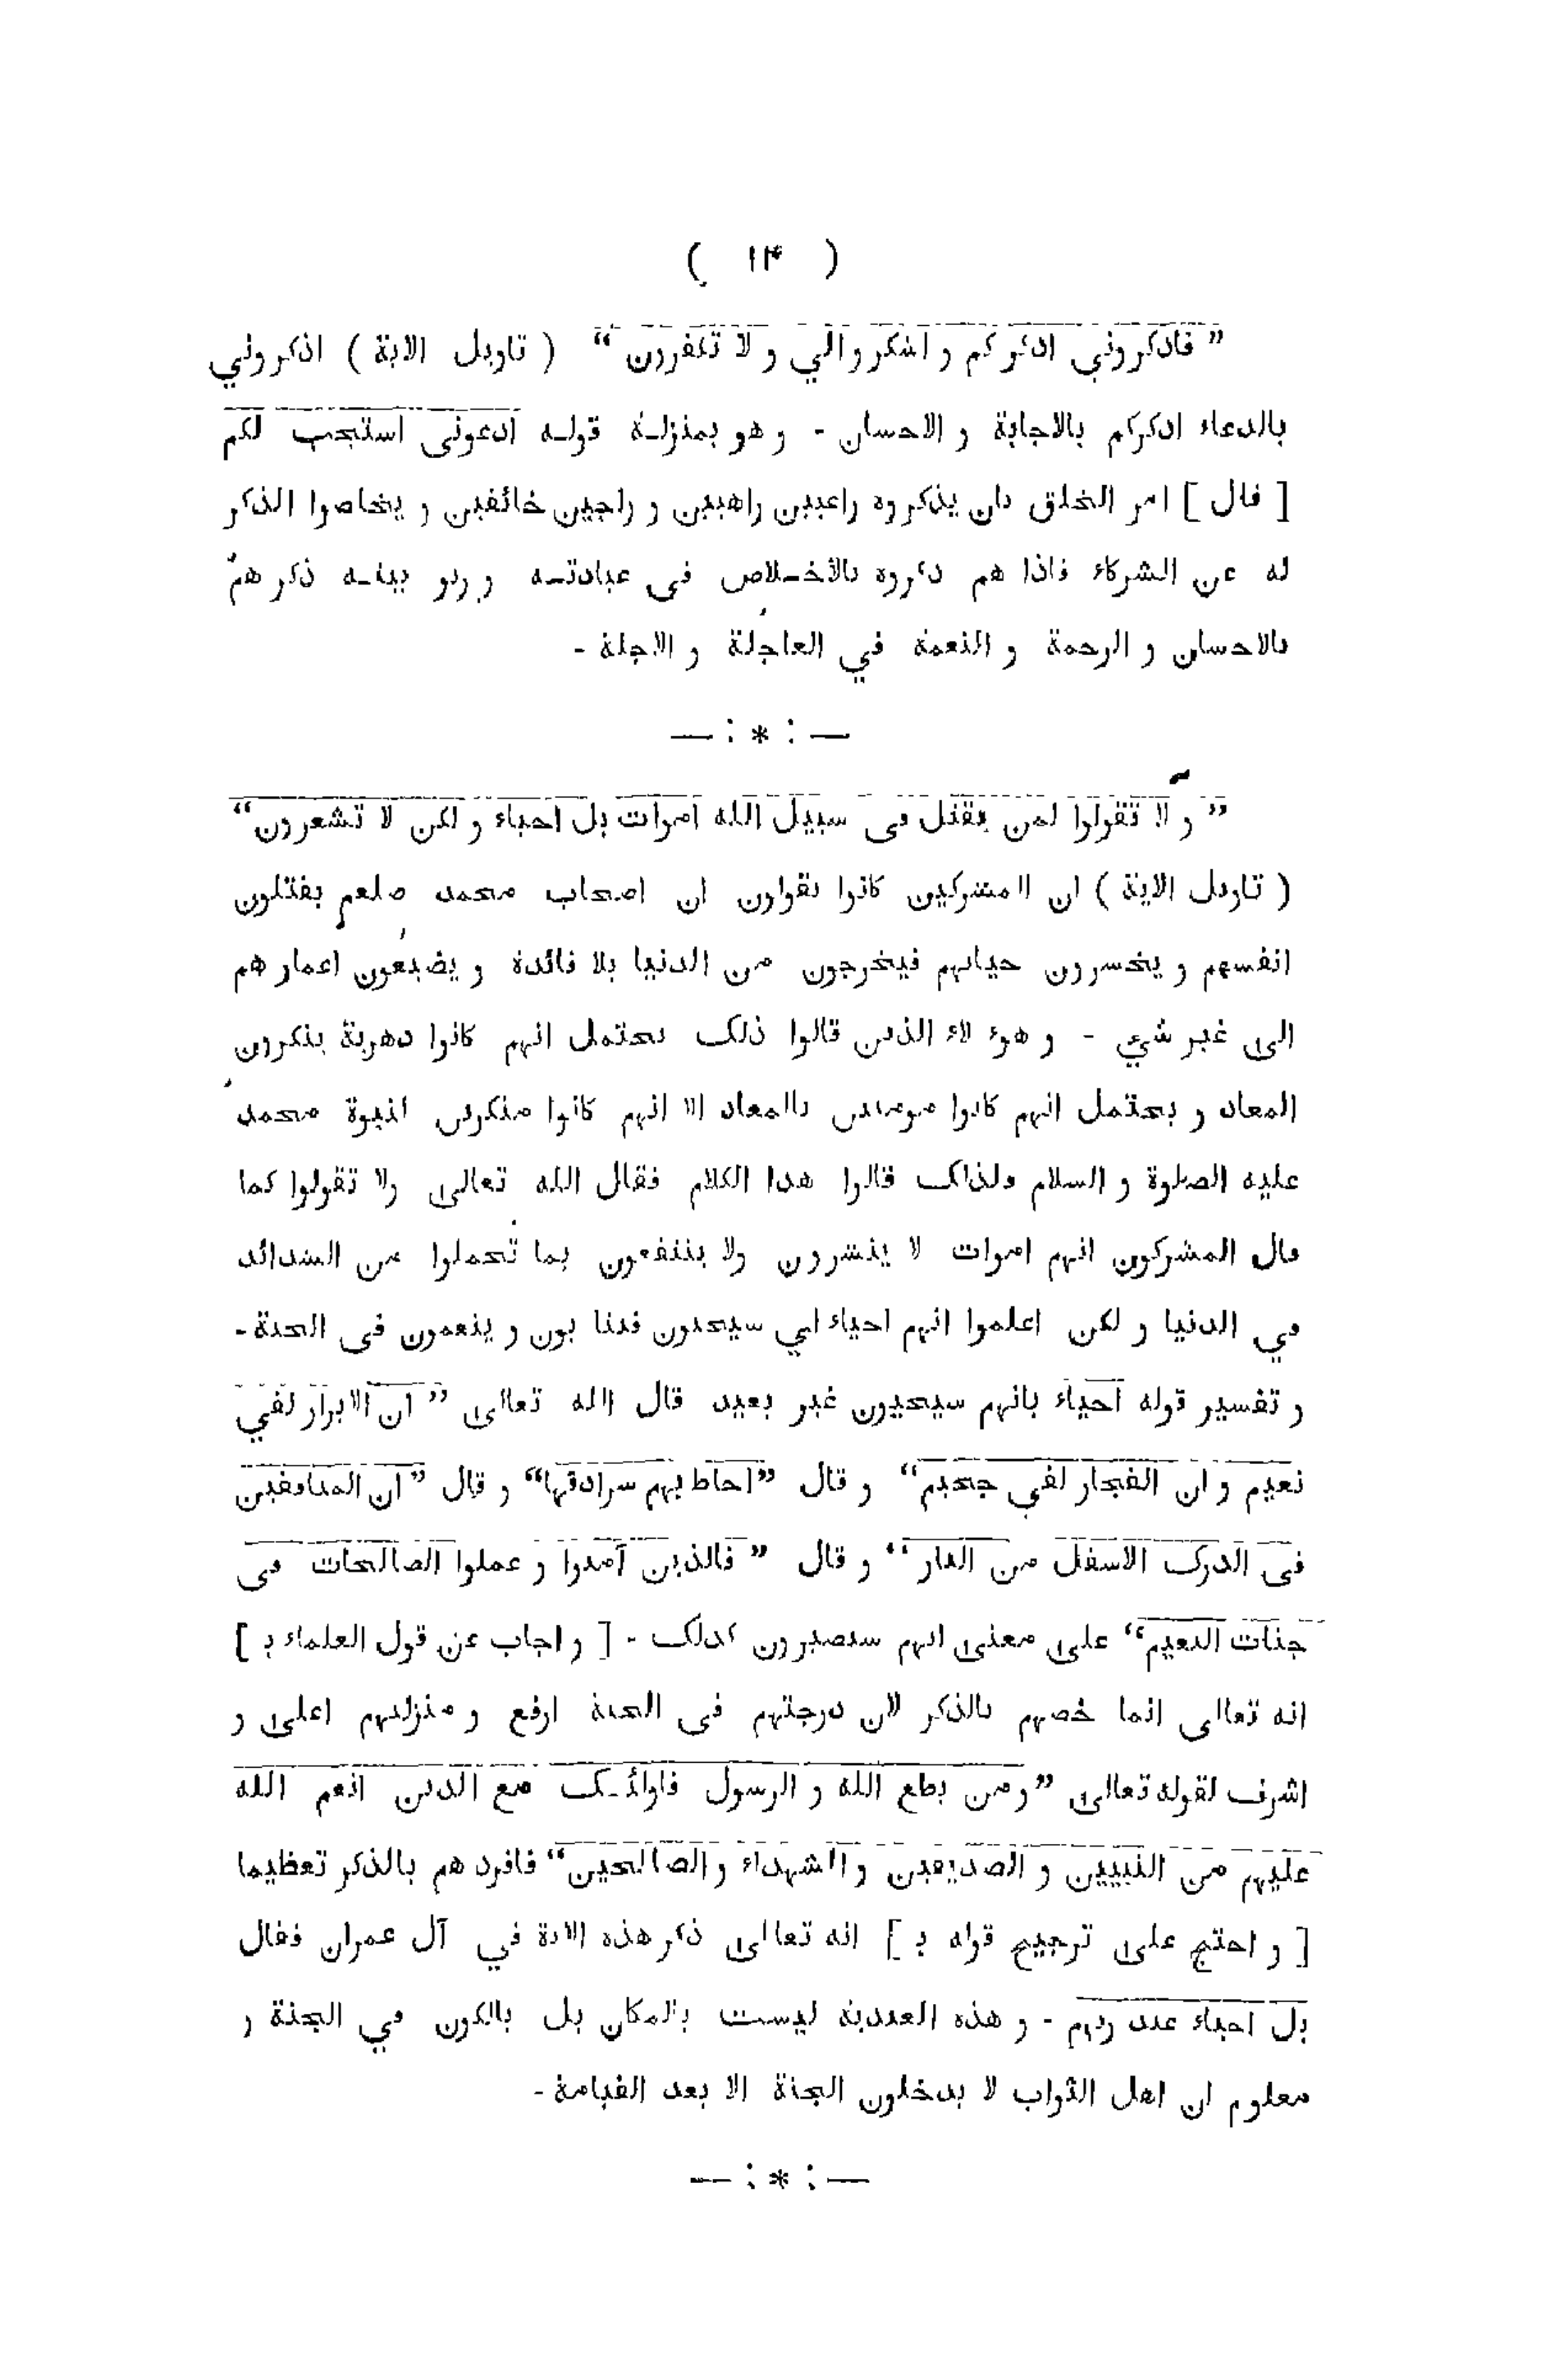 ( ١٣ )
” فاذكروني اذكركم و اشكروالي و لا تكفرون “ ( تاويل الاية ) اذكروني
بالدعاء اذكركم بالاجابة و الاحسان - و هو بمنزلـة قولـه ادعونى استجب لكم
[ قال ] امر الخلق بان يذكروه راغبين راهبين و راجين خائفين و يخلصوا الذكر
له عن الشركاء فاذا هم ذكروه بالاخـلاص فى عبادتـه و ربو بيتـه ذكر هم
بالاحسان و الرحمة و النعمة في العاجلة و الاجلة -
— : * : —
” و لا تقولوا لمن يقتل فى سبيل الله اموات بل احياء و لكن لا تشعرون “
( تاويل الاية ) ان المشركين كانوا يقولون ان اصحاب محمد صلعم يقتلون
انفسهم و يخسرون حياتهم فيخرجون من الدنيا بلا فائدة و يضيعون اعمار هم
الى غير شي - و هوء لاء الذين قالوا ذلك يحتمل انهم كانوا دهرية ينكرون
المعاد و يحتمل انهم كانوا مومنين بالمعاد الا انهم كانوا منكرين لنبوة محمد
عليه الصلوة و السلام ولذلك قالوا هذا الكلام فقال الله تعالى ولا تقولوا كما
قال المشركون انهم اموات لا ينشرون ولا ينتفعون بما تحملوا من الشدائد
في الدنيا و لكن اعلموا انهم احياء اي سيحيون فيثا بون و ينعمون فى الجنة -
و تفسير قوله احياء بانهم سيحيون غير بعيد قال الله تعالى ” ان الابرار لفي
نعيم و ان الفجار لفي جحيم “ و قال ” احاط بهم سرادقها “ و قال ” ان المنافقين
فى الدرك الاسفل من النار “ و قال ” فالذين آمنوا و عملوا الصالحات فى
جنات النعيم “ على معنى انهم سيصيرون كذلك - [ و اجاب عن قول العلماء بـ ]
انه تعالى انما خصهم بالذكر لان درجتهم فى الجنة ارفع و منزلتهم اعلى و
اشرف لقوله تعالى ” ومن يطع الله و الرسول فاولئـك مع الذين انعم الله
عليهم من النبيين و الصديقين و الشهداء و الصالحين “ فافرد هم بالذكر تعظيما
[ و احتج على ترجيح قوله بـ ] انه تعالى ذكر هذه الاية في آل عمران فقال
بل احياء عند ربهم - و هذه العندية ليست بالمكان بل بالكون في الجنة و
معلوم ان اهل الثواب لا يدخلون الجنة الا بعد القيامة -
— : * : —